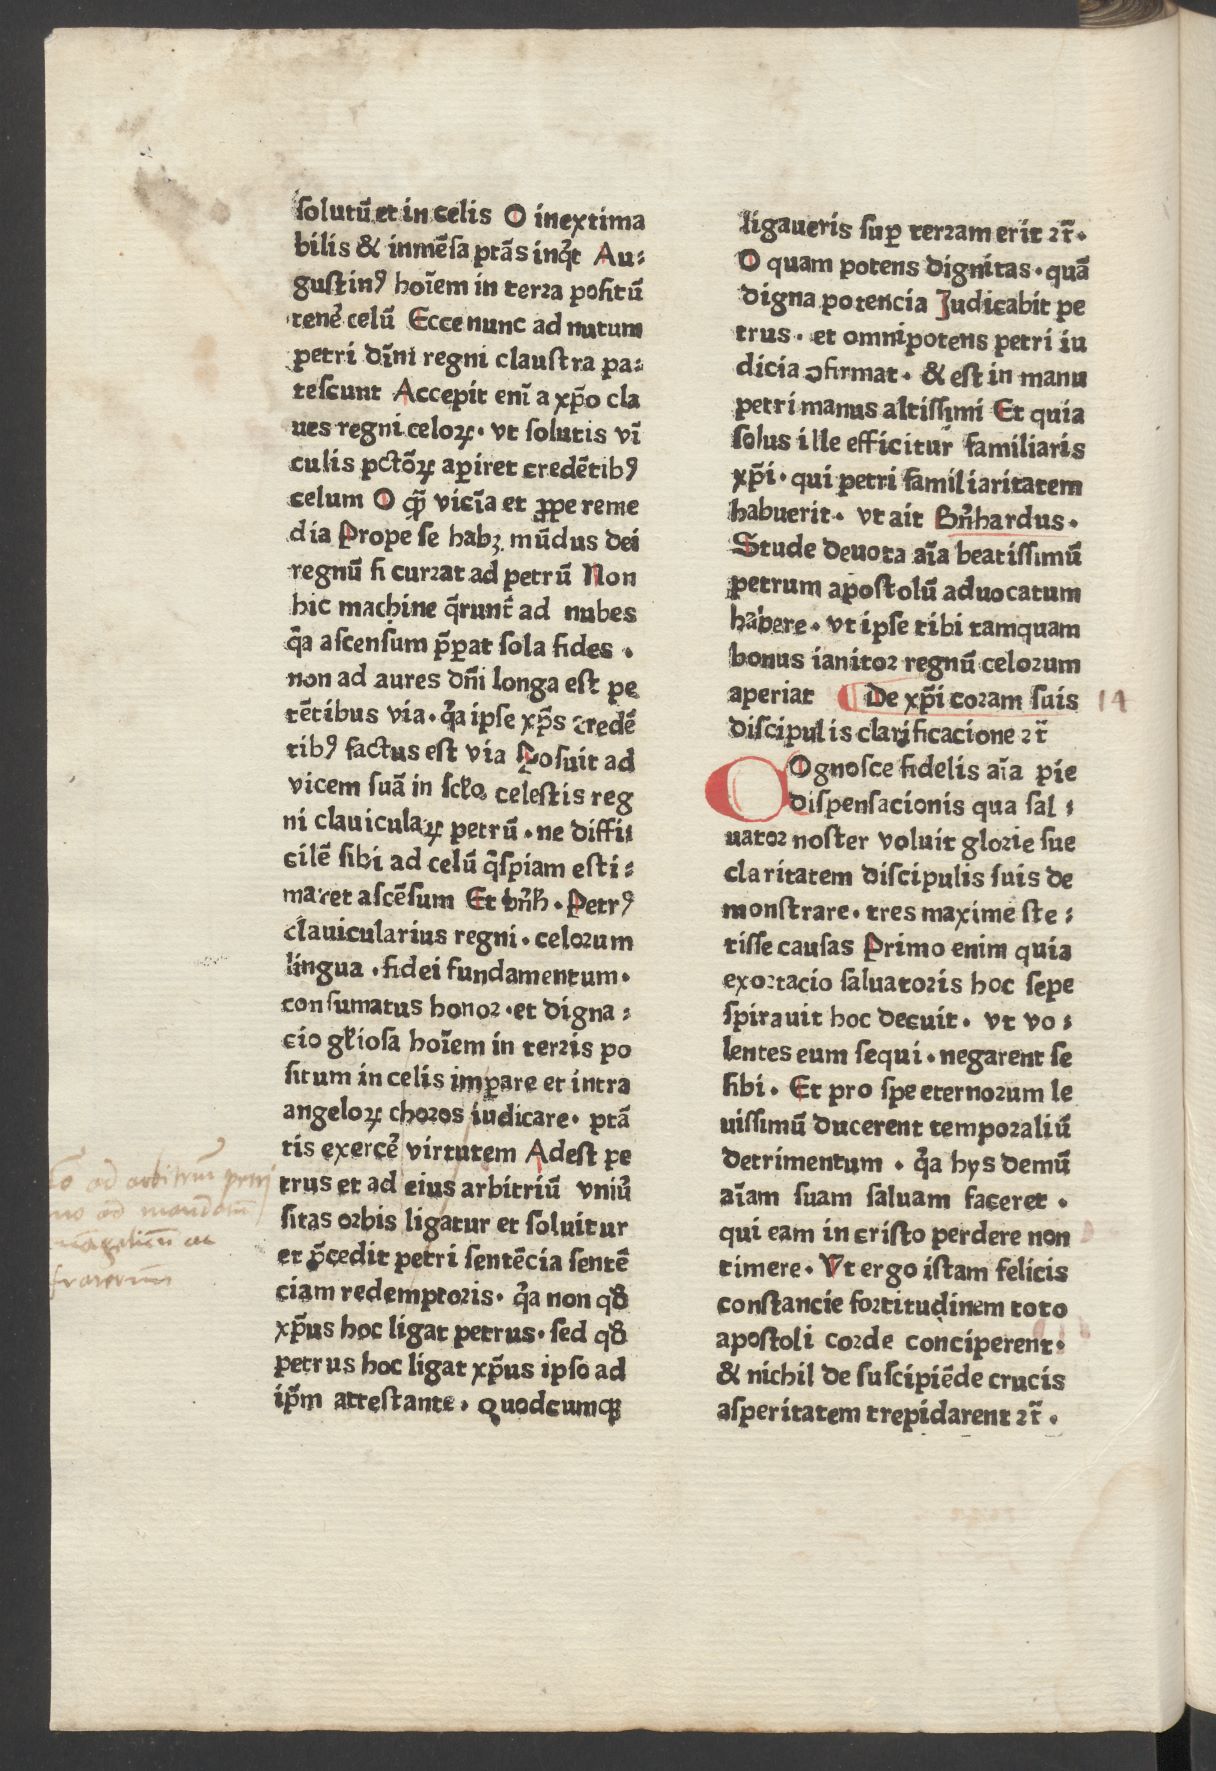 solutū et in celis O inextima
bilis & inmēsa ptās inqͥt Au⸗
gustinꝰ hoīem in terra positū
tene᷑ celū Ecce nunc ad nutum
petri dīni regni claustra pa⸗
tescunt Accepit enī a xp̄o cla
ues regni celoꝝ · vt solutis vī
culis pctōꝝ aꝑiret credētibꝰ
celum O qͣꝫ vicīa et ꝓpe reme
dia Prope se habꝫ mūdus dei
regnū si currat ad petrū Non
hic machine q̄runt᷑ ad nubes
qͥa ascensum p̄ꝑat sola fides .
non ad aures dn̄i longa est pe
tētibus via · qͥa ipse xp̄s credē
tibꝰ factus est via Posuit ad
vicem suā in scłᷤo celestis reg
ni clauiculaꝝ petrū · ne diffi⸗
cilē sibi ad celū qͥspiam esti⸗
maret ascēsum Et bn̄h̄ · Petrꝰ
clauicularius regni · celorum
lingua · fidei fundamentum ·
consumatus honor · et digna⸗
cio głiosa hoīem in terris po
situm in celis imꝑare et intra
angeloꝝ choros iudicare · ptā
tis exerce᷑ virtutem Adest pe
trus et ad eius arbitriū vniu᷑
sitas orbis ligatur et soluitur
et p̄cedit petri sentēcia sentē
ciam redemptoris · qͥa non qď
xp̄us hoc ligat petrus · sed qď
petrus hoc ligat xp̄us ipso ad
ip̄m attestante · Quodcumqꝫ
ligaueris suꝑ terram erit ⁊c̄ ·
O quam potens dignitas · quā
digna potencia Judicabit pe
trus · et omnipotens petri iu
dicia ꝯfirmat · & est in manu
petri manus altissimi Et quia
solus ille efficitur familiaris
xp̄i · qui petri familiaritatem
habuerit · vt ait Bn̄hardus ·
Stude deuota aīa beatissimū
petrum apostolū aduocatum
habere · vt ipse tibi tamquam
bonus ianitor regnū celorum
aperiat De xp̄i coram suis 14
discipulis clarificacione ⁊c̄
COgnosce fidelis aīa pie
dispensacionis qua sal⸗
uator noster voluit glorie sue
claritatem discipulis suis de
monstrare · tres maxime ste⸗
tisse causas Primo enim quia
exortacio saluatoris hoc sepe
spirauit hoc decuit · vt vo⸗
lentes eum sequi · negarent se
sibi · Et pro spe eternorum le
uissimū ducerent temporaliū
detrimentum · qͥa hys demū
aīam suam saluam faceret ·
qui eam in cristo perdere non
timere · Vt ergo istam felicis
constancie fortitudinem toto
apostoli corde conciperent ·
& nichil de suscipiēde crucis
asperitatem trepidarent ⁊c̄ ·
ad arbitrium petri
ad mandatū